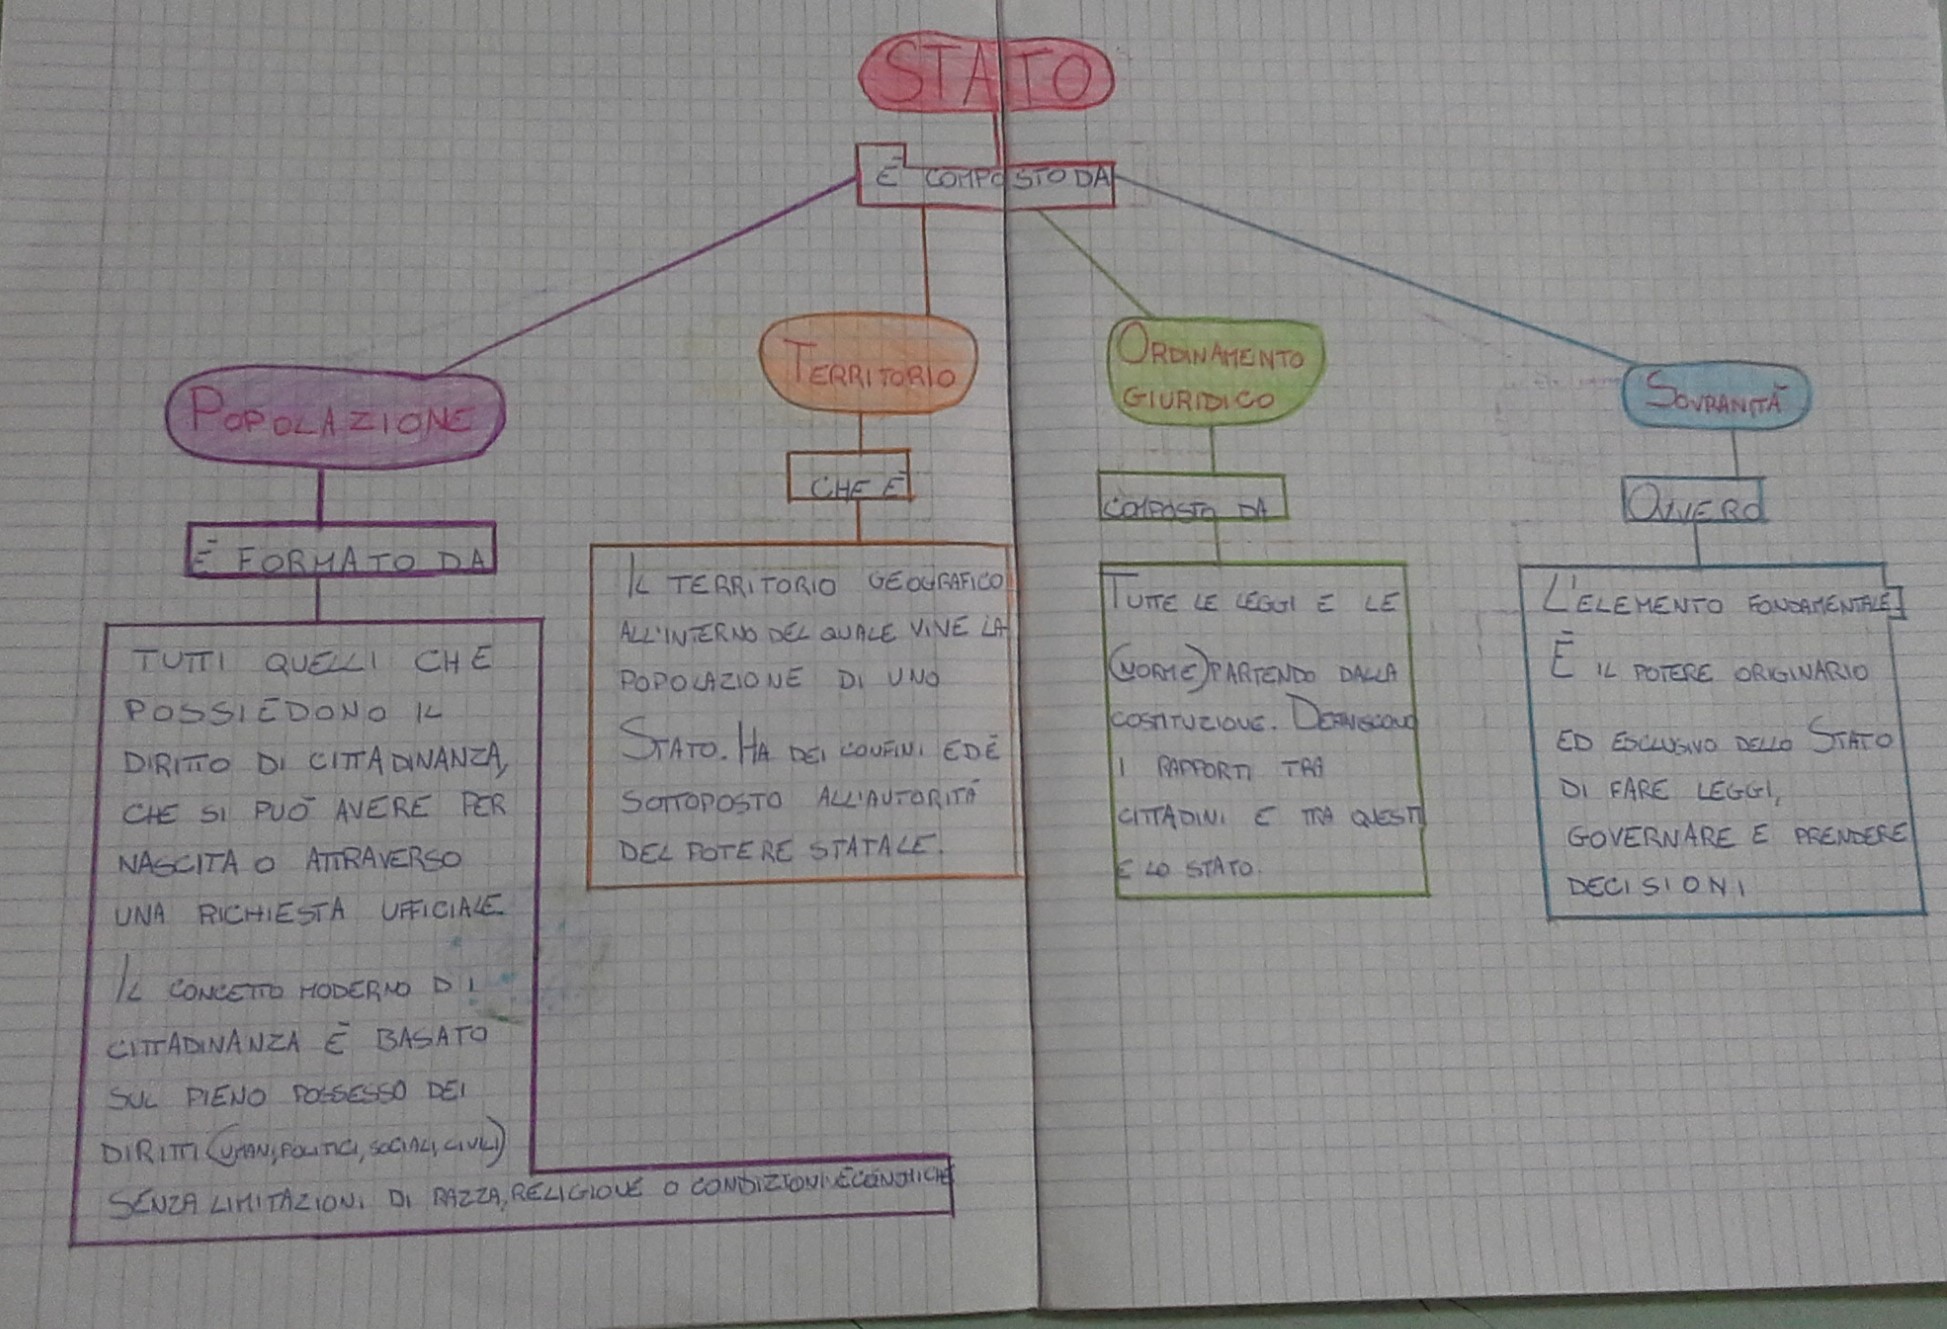 STATO
È COMPOSTO DA
POPOLAZIONE
È FORMATO DA
TUTTI QUELLI CHE
POSSIEDONO IL
DIRITTO DI CITTADINANZA,
CHE SI PUÒ AVERE PER
NASCITA O ATTRAVERSO
UNA RICHIESTA UFFICIALE.
IL CONCETTO MODERNO DI
CITTADINANZA È BASATO
SUL PIENO POSSESSO DEI
DIRITTI (UMANI, POLITICI, SOCIALI, CIVILI)
SENZA LIMITAZIONI DI RAZZA, RELIGIONE O CONDIZIONI ECONOMICHE
TERRITORIO
CHE È
IL TERRITORIO GEOGRAFICO
ALL'INTERNO DEL QUALE VIVE LA
POPOLAZIONE DI UNO
STATO. HA DEI CONFINI ED È
SOTTOPOSTO ALL'AUTORITÀ
DEL POTERE STATALE.
ORDINAMENTO
GIURIDICO
COMPOSTO DA
TUTTE LE LEGGI E LE
(NORME) PARTENDO DALLA
COSTITUZIONE. DEFINISCONO
I RAPPORTI TRA
CITTADINI E TRA QUESTI
E LO STATO.
SOVRANITÀ
OVVERO
L'ELEMENTO FONDAMENTALE
È IL POTERE ORIGINARIO
ED ESCLUSIVO DELLO STATO
DI FARE LEGGI,
GOVERNARE E PRENDERE
DECISIONI